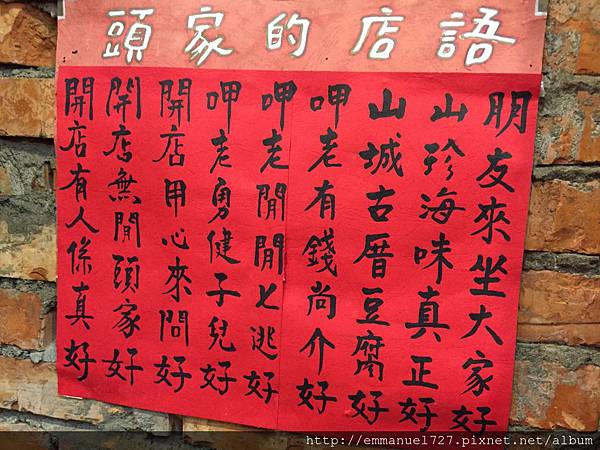 頭家的店語
朋友來坐大家好
山珍海味真正好
山城古厝豆腐好
呷老有錢尚介好
呷老閒閒七逃好
呷老勇健子兒好
開店用心來問好
開店無閒頭家好
開店有人係真好
http://emmanuel727.pixnet.net/album